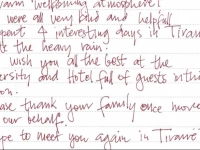 warm welcoming atmosphere!
were all very kind and helpful
spent 4 interesting days in Tirane
te the heavy rain.
wish you all the best at the
ersity and Hotel full of guests in this
on.
ase thank your family once more
our behalf.
pe to meet you again in Tirane